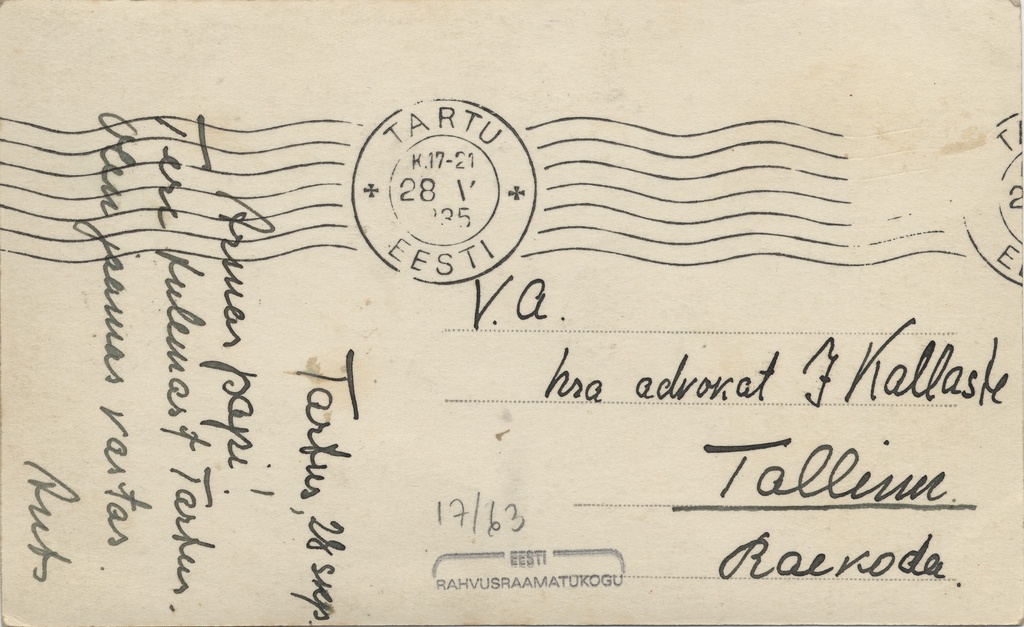 TARTU
K.17-21
28 V
35
EESTI
Tartus, 28 sept.
Armas papi!
Tere tulemast Tartus.
Olen jaamas vastas
Ruts
V. A.
hra advokat J Kallaste
Tallinn.
Raekoda.
17/63
EESTI
RAHVUSRAAMATUKOGU